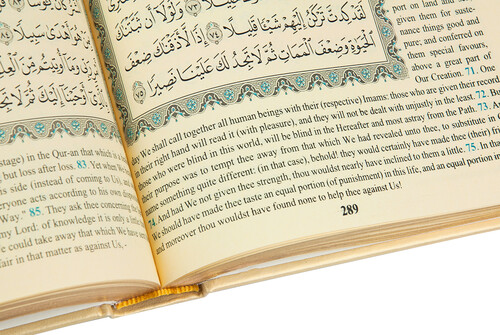 أَهْدَىٰ سَبِيلًا
وَمَآ أُوتِيتُم مِّنَ
أَوْحَيْنَآ إِلَيْكَ ثُمَّ لَا
stage) in the Qur-an that which is
but loss after loss. 83. Yet when We
his side (instead of coming to Us), and
everyone acts according to his own
Way." 85. They ask thee concerning the
my Lord: of knowledge it is only a
We could take away that which We have
affair in that matter as against Us,
وَلَوْلَآ أَن ثَبَّتْنَٰكَ
لَقَدْ كِدتَّ تَرْكَنُ إِلَيْهِمْ شَيْـًٔا قَلِيلًا ٧٤ إِذًا لَّأَذَقْنَٰكَ ضِعْفَ
ٱلْحَيَوٰةِ وَضِعْفَ ٱلْمَمَاتِ ثُمَّ لَا تَجِدُ لَكَ عَلَيْنَا نَصِيرًا ٧٥
port on land and
given them for suste-
nance things good and
pure; and conferred on
them special favours,
above a great part of
Our Creation. 71. One
day We shall call together all human beings with their (respective) Imams: those who are given their record
their right hand will read it (with pleasure), and they will not be dealt with unjustly in the least. 72.
those who were blind in this world, will be blind in the Hereafter and most astray from the Path. 73.
their purpose was to tempt thee away from that which We had revealed unto thee, to substitute in
name something quite different: (in that case), behold! they would certainly have made thee (their)
74. And had We not given thee strength, thou wouldst nearly have inclined to them a little. 75. In that
We should have made thee taste an equal portion (of punishment) in this life, and an equal portion
and moreover thou wouldst have found none to help thee against Us!
289